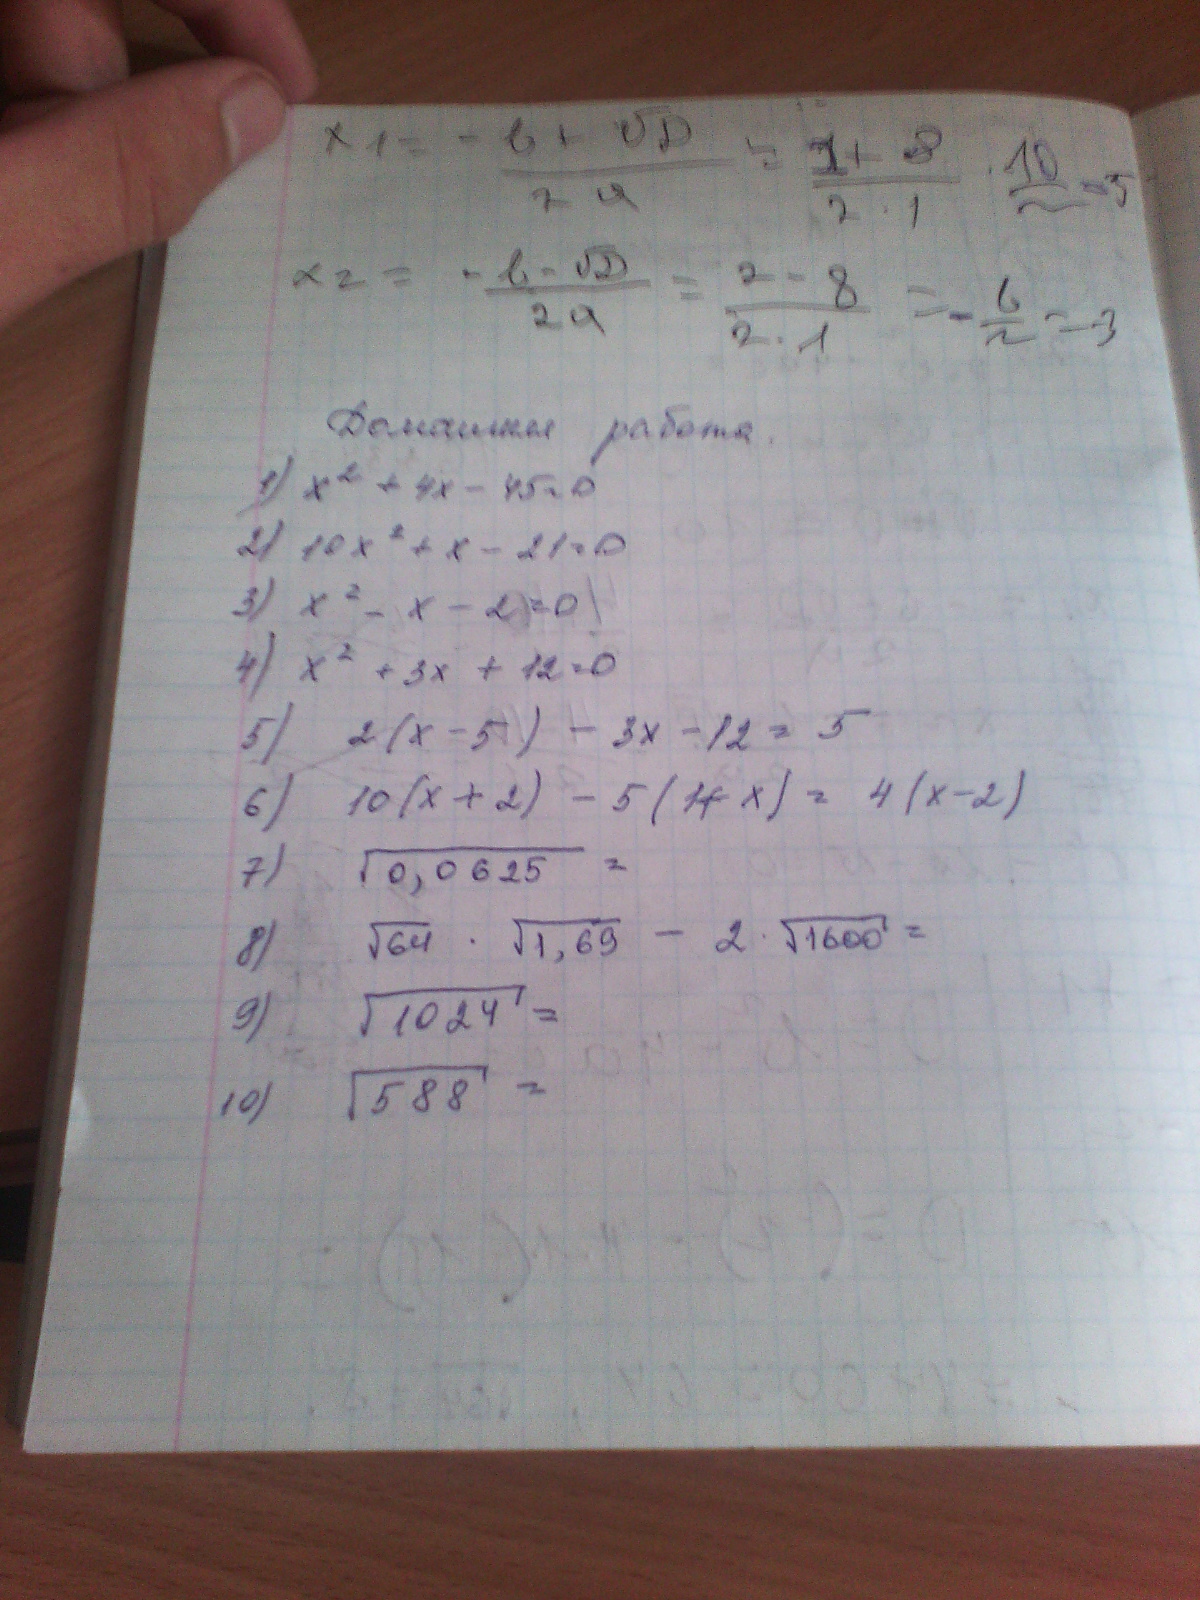 x1 = -b + √D / 2a = 2 + 8 / 2 · 1 10 / 2 = 5
x2 = -b - √D / 2a = 2 - 8 / 2 · 1 = - 6 / 2 = -3
Домашняя работа.
1) x² + 4x - 45 = 0
2) 10x² + x - 21 = 0
3) x² - x - 2 = 0
4) x² + 3x + 12 = 0
5) 2(x - 5) - 3x - 12 = 5
6) 10(x + 2) - 5(1 + x) = 4(x - 2)
7) √0,0625 =
8) √64 · √1,69 - 2 · √1600 =
9) √1024 =
10) √588 =